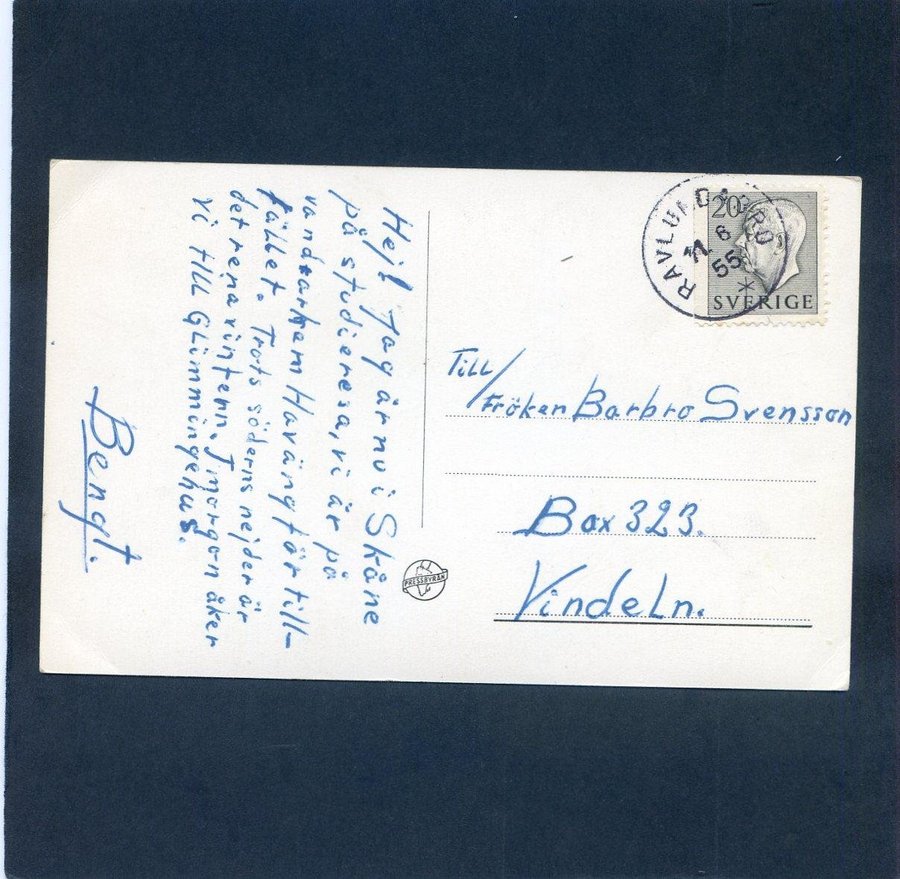 Hej! Jag är nu i Skåne
på studieresa, vi är på
vandrarhem Haväng för till-
fället. Trots söderns nejder är
det rena vintern. I morgon åker
vi till Glimmingehus.
Bengt.
PRESSBYRÅN
RAVLUNDABRO
11 6
55
20
SVERIGE
Till/
Fröken Barbro Svensson
Box 323.
Vindeln.